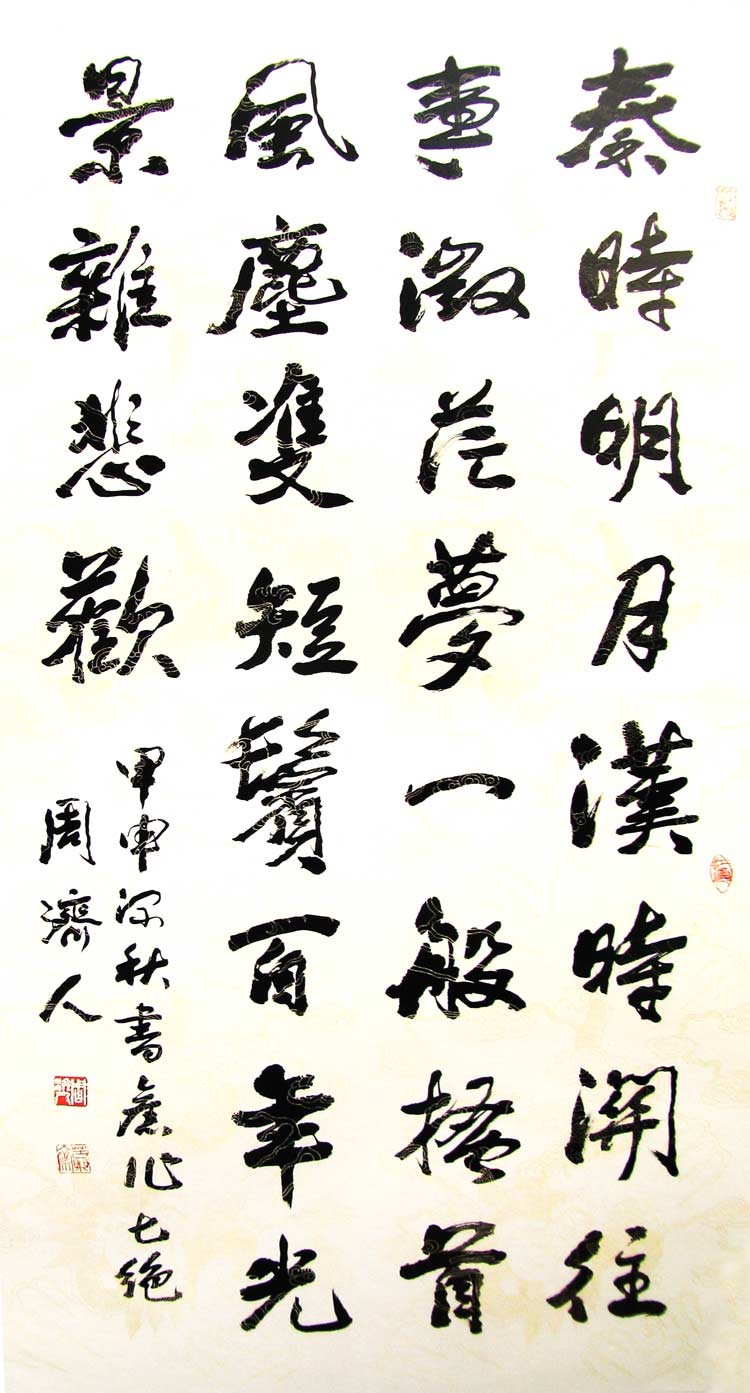 秦時明月漢時關往
事微茫夢一般搔首
風塵雙短鬢百年光
景雜悲歡
甲申深秋書舊作七絕
周濟人